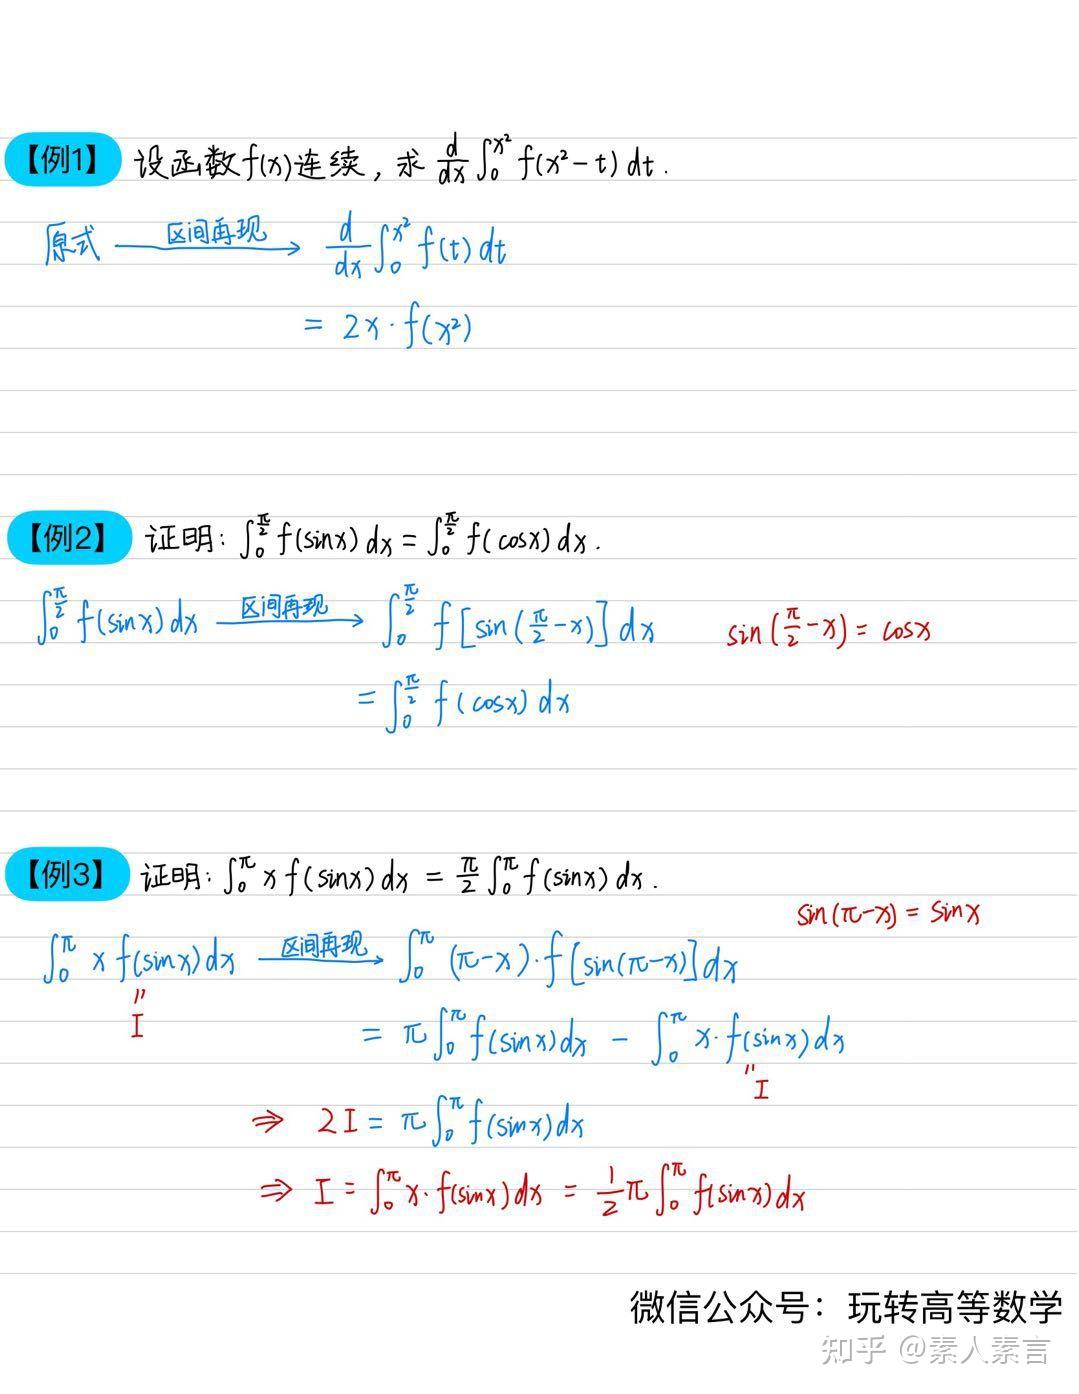 【例1】 设函数f(x)连续，求 d/dx ∫₀^{x²} f(x²-t) dt.
原式 区间再现→ d/dx ∫₀^{x²} f(t) dt
= 2x·f(x²)
【例2】 证明: ∫₀^{π/2} f(sinx) dx = ∫₀^{π/2} f(cosx) dx.
∫₀^{π/2} f(sinx) dx 区间再现→ ∫₀^{π/2} f[sin(π/2-x)] dx sin(π/2-x) = cosx
= ∫₀^{π/2} f(cosx) dx
【例3】 证明: ∫₀^π x f(sinx) dx = π/2 ∫₀^π f(sinx) dx.
sin(π-x) = sinx
∫₀^π x f(sinx) dx 区间再现→ ∫₀^π (π-x)·f[sin(π-x)] dx
"
I
= π∫₀^π f(sinx) dx - ∫₀^π x·f(sinx) dx
"
I
⇒ 2I = π∫₀^π f(sinx) dx
⇒ I = ∫₀^π x·f(sinx) dx = 1/2 π∫₀^π f(sinx) dx
微信公众号：玩转高等数学
知乎 @素人素言